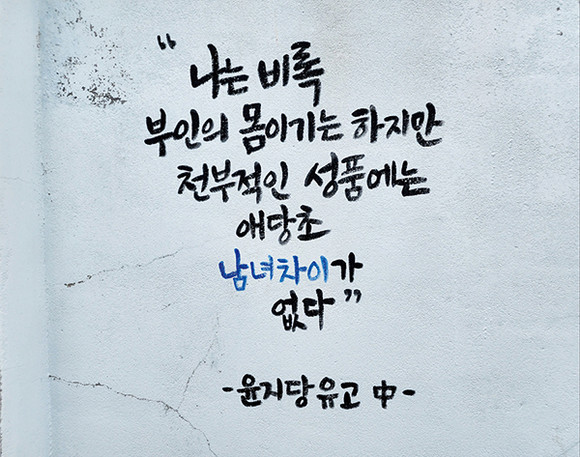 “ 나는 비록
부인의 몸이기는 하지만
천부적인 성품에는
애당초
남녀차이가
없다 ”
- 윤지당유고 中 -